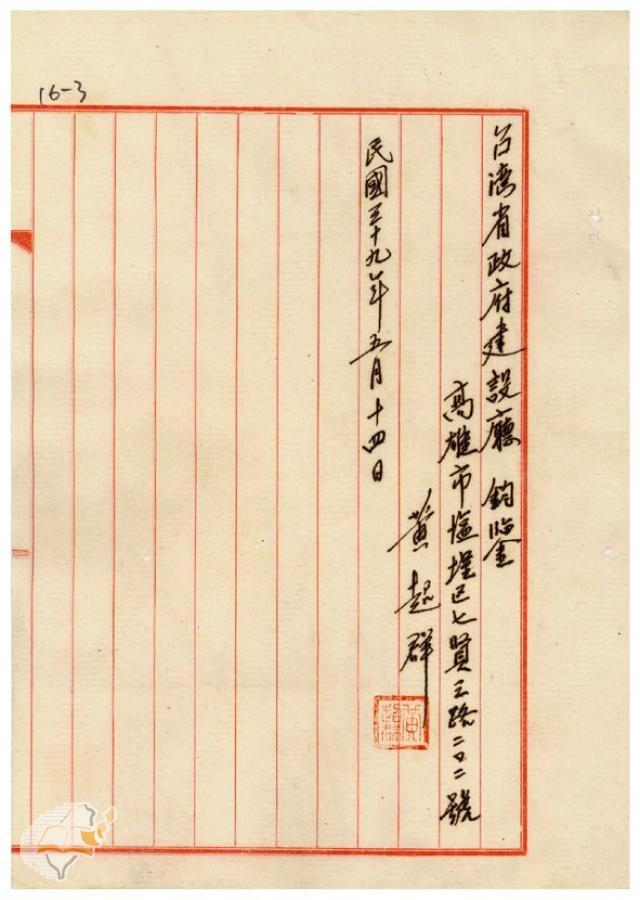 16-3
台湾省政府建設廳 鈞鑒
高雄市塩埕区七賢三路二〇二號
黄起群
民國三十九年五月十四日